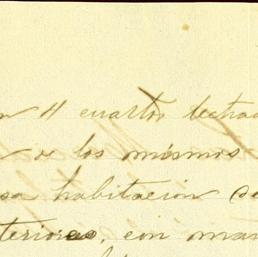 n 4 cuartos techad
n o los mismos
sa habitacion
teriores, con